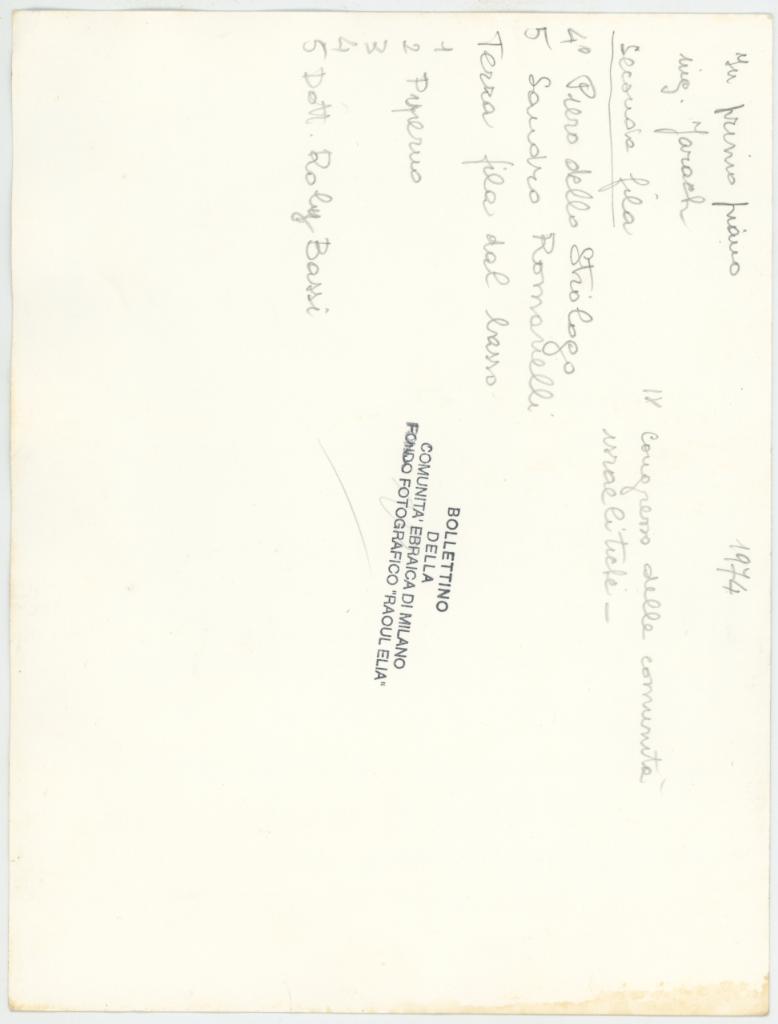 In primo piano
ing. Jarach
Seconda fila
4° Piero dello Strologo
5 Sandro Romanelli
Terza fila dal basso
1
2 Piperno
3
4
5 Dott. Roby Bassi
1974
IX Congresso delle comunità
israelitiche -
BOLLETTINO
DELLA
COMUNITA' EBRAICA DI MILANO
FONDO FOTOGRAFICO "RAOUL ELIA"